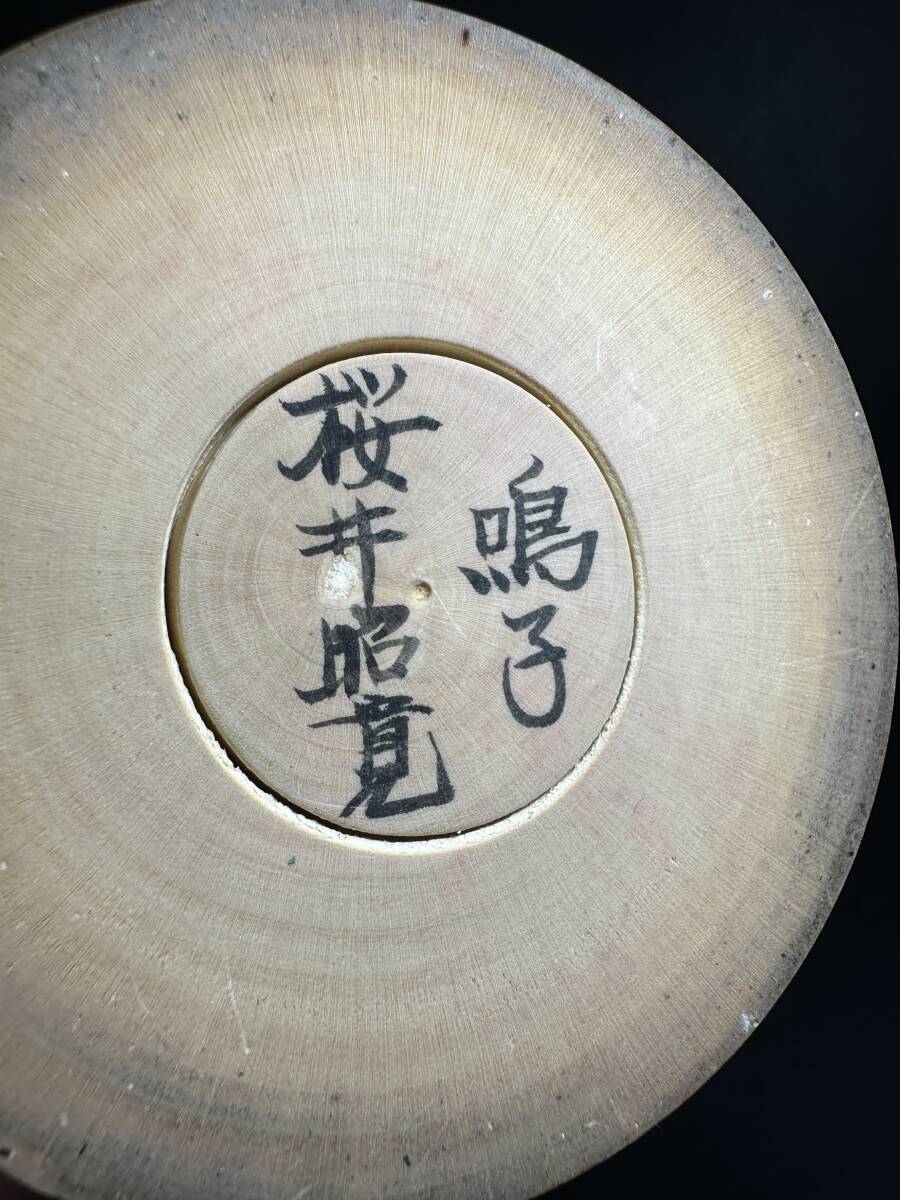 鳴子
桜井昭寛